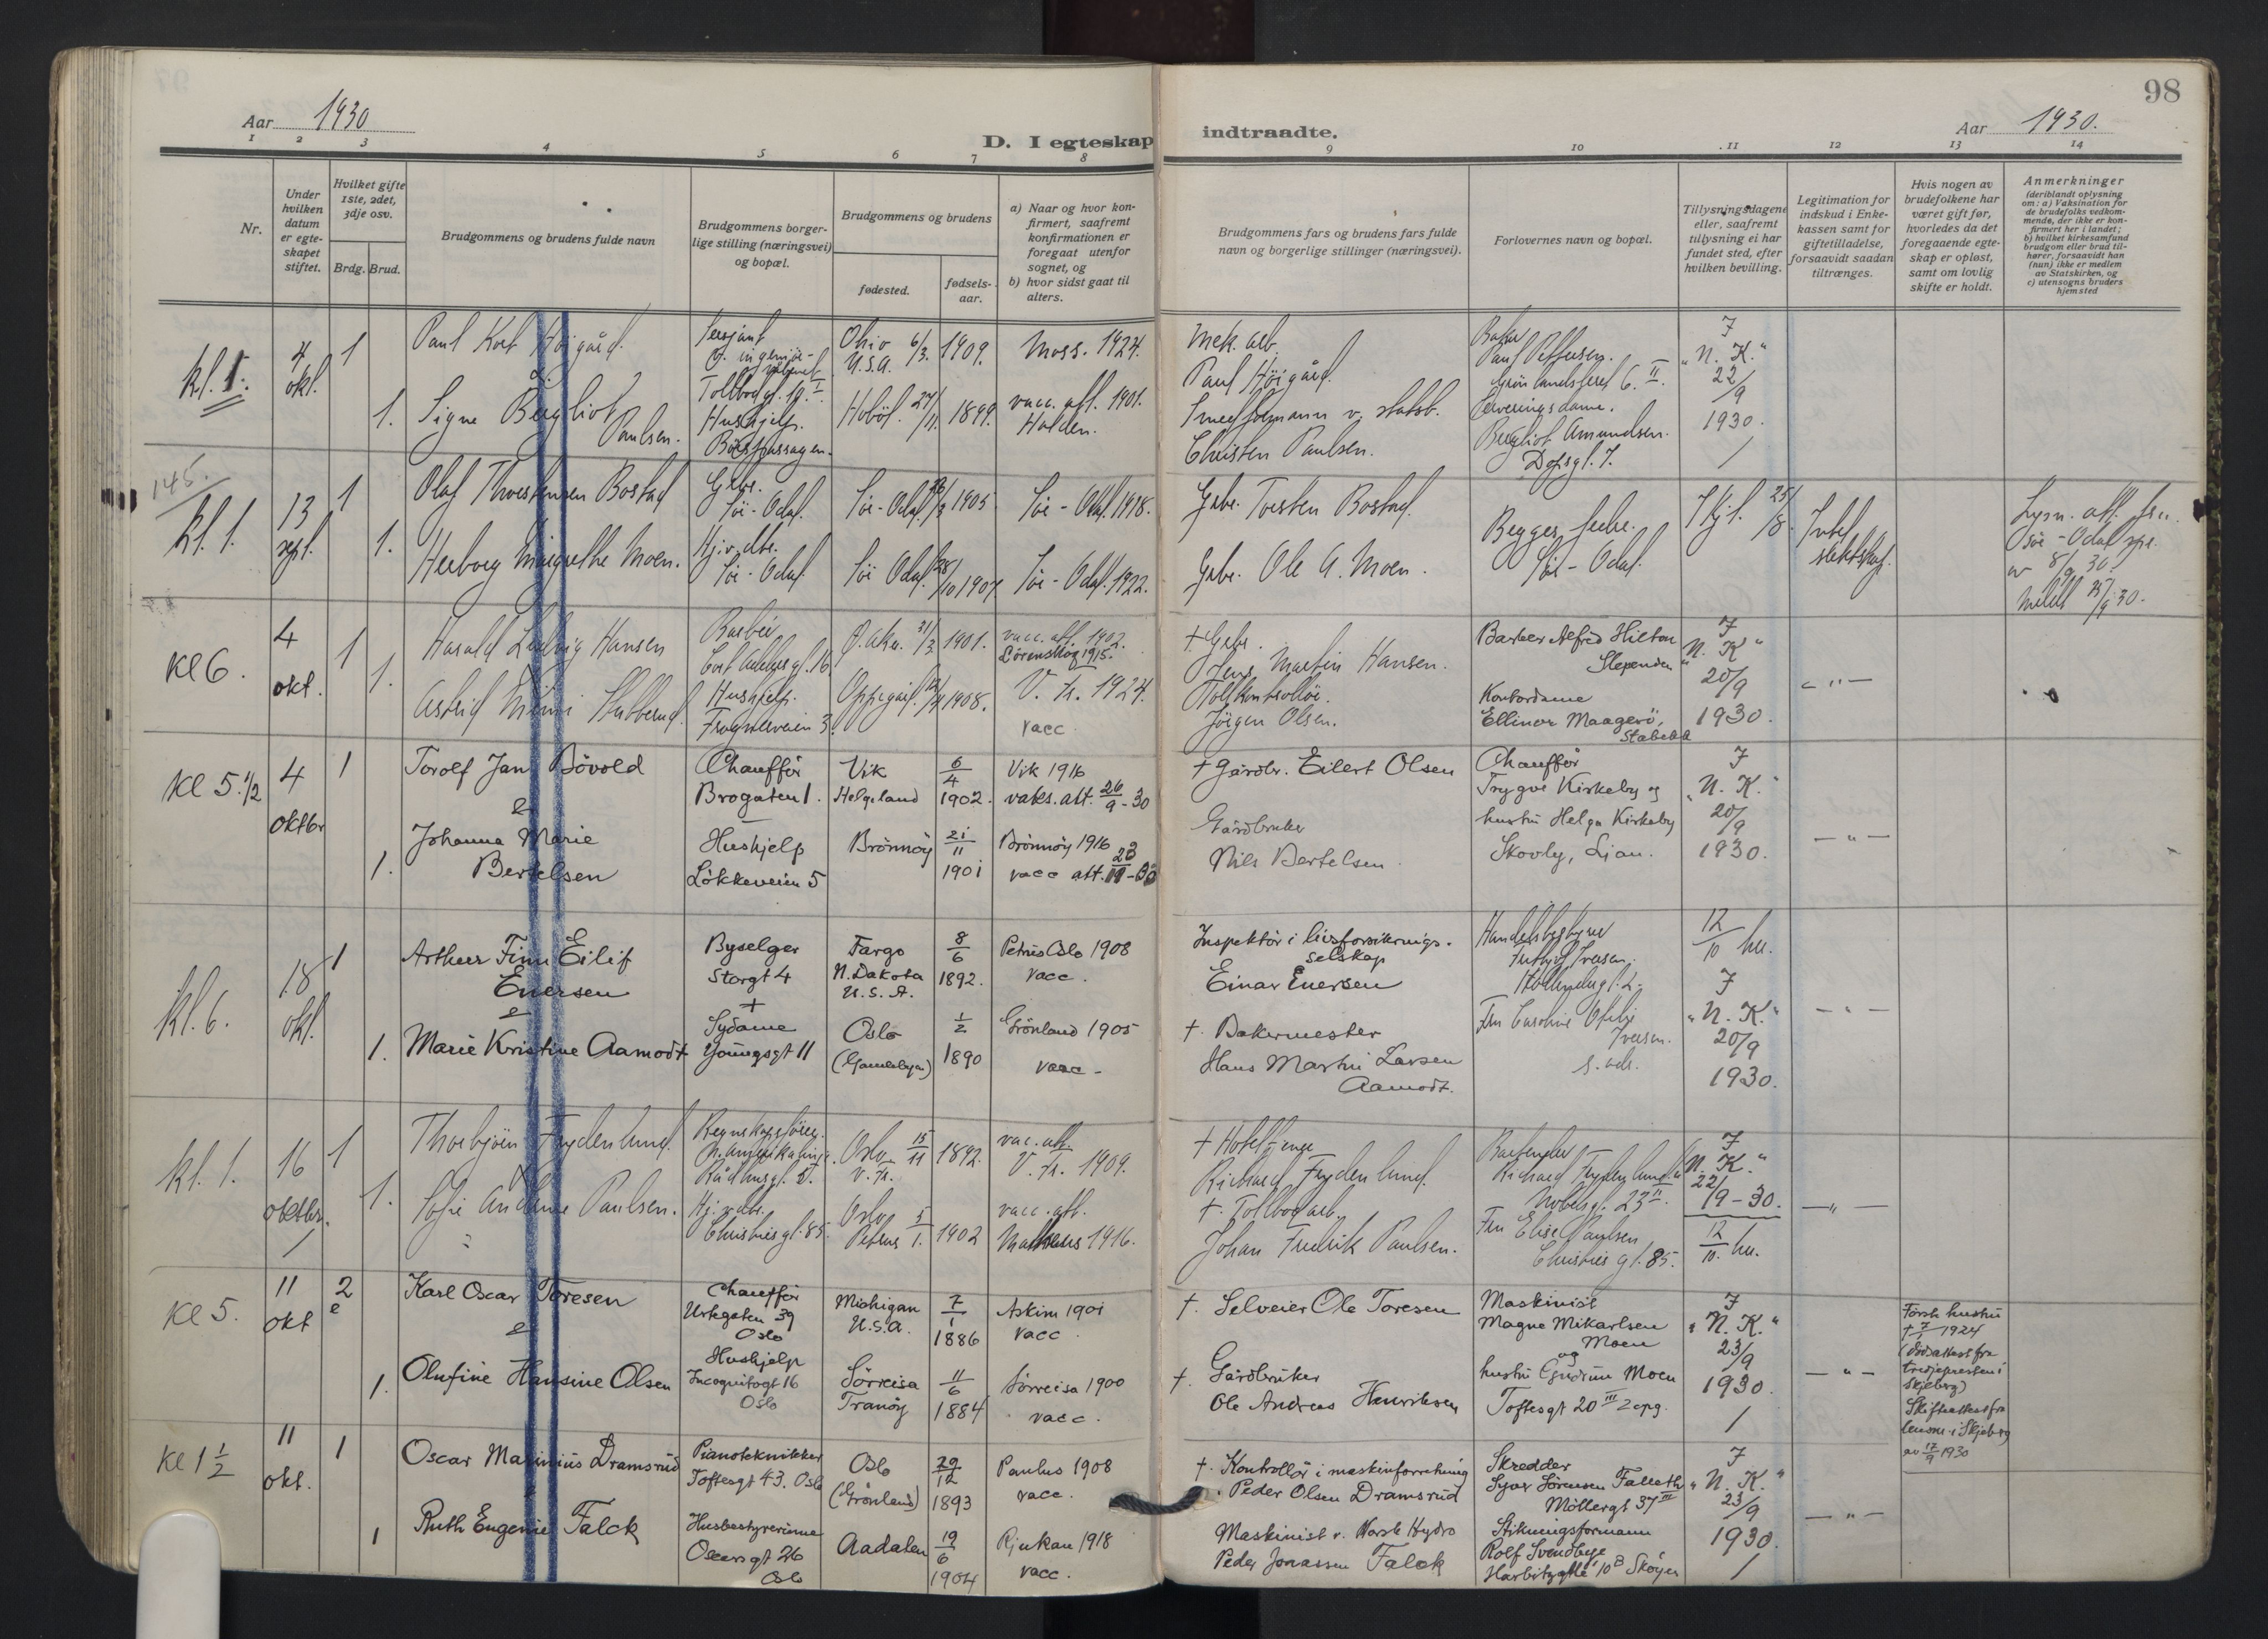 Aar 1930
D. I egteskap
1 2 3 4 5 6 7 8
Nr.
Under hvilken datum er egte-skapet stiftet.
Hvilket gifte 1ste, 2det, 3dje osv.
Brdg. Brud.
Brudgommens og brudens fulde navn
Brudgommens borger-
lige stilling (næringsvei)
og bopæl.
Brudgommens og brudens
fødested.
fødsels-
aar.
a) Naar og hvor kon-
firmert, saafremt
konfirmationen er
foregaat utenfor
sognet, og
b) hvor sidst gaat til
alters.
kl. 1.
4
okt.
1
Paul Kort Höigård.
&
Sersjant
Tollbodgt. 10 I.
Ohio 6/3. 1909.
U.S.A.
Moss. 1924.
1. Signe Bergliot
Paulsen.
Hushjelp.
Börspassagen.
Hobøl. 27/11. 1899.
vacc. att. 1901.
Halden.
145.
kl. 1.
13
sept.
1
Olaf Thorstensen Bostad
Gbr.
Sör-Odal.
Sör-Odal 1905
Sör-Odal 1918.
1. Herborg Margrethe Moen.
Hj.v. dtr.
Sör-Odal.
Sör Odal. 28/10 1907
Sör-Odal. 1922.
Kl 6.
4
okt.
1
Harald Ludvig Hansen
Barber
Cort Adelers gt. 16
G. Aker. 31/3. 1901.
vacc. att. 1902.
Lörenskog 1915.
1. Astrid Mimi Stubberud.
Hushjelp.
Frognerveien 3.
Oppegård. 1908.
V. Fr. 1924.
vacc
Kl 5.1/2
4
oktbr
1
Torolf Jan Bövold
&
Chaufför
Brogaten 1.
Vik
Helgeland
6/4
1902.
Vik 1916
vaks. att. 26/9-30
1. Johanna Marie
Bertelsen
Hushjelp
Lökkeveien 5
Brönnöy
21/11
1901
Brönnöy 1916
vacc att.
kl. 6.
18
okt.
1
Arthur Finn Eilif
Enersen
&
Byselger
Storgt 4
Fargo
N. Dakota
U.S.A.
8/6
1892.
Petrus Oslo 1908
vacc.
1. Marie Kristine Aamodt
Sydame
Youngsgt 11
Oslo
(Gamlebyen)
1/2
1890
Grönland 1905
vacc-
kl. 1.
16
oktbr.
1
Thorbjörn Frydenlund.
Regnskapsförer.
N. Amerikalinje.
Rådhusgt. 2.
Oslo 15/11 1892.
V. Fr.
vac. att.
V. Fr. 1909.
1. Sofie Andrine Paulsen.
Hj.v. dtr.
Christies gt. 85.
Oslo
Petrus 5/1. 1902
vacc. att.
Matteus 1916.
Kl 5.
11
okt
2
Karl Oscar Toresen
&
Chauffør
Urtegaten 39
Oslo
Michigan
U.S.A.
7/1
1886
Askim 1901
vacc.
1. Olufine Hansine Olsen
Hushjelp
Incognitogt 16
Oslo
Sörreisa
Tranöy
11/6
1884
Sörreisa 1900
vacc.
Kl 1 1/2
11
okt.
1
Oscar Marinius Dramsrud
Pianotekniker
Toftesgt 43. Oslo
Oslo
(Grönland)
29/12
1893
Paulus 1908
vacc.
1 Ruth Eugenie Falck
Husbestyrerinne
Oscarsgt 26
Oslo
Aadalen
19/6
1904
Rjukan 1918
vacc.
98
indtraadte.
Aar 1930.
9 10 11 12 13 14
Brudgommens fars og brudens fars fulde
navn og borgerlige stillinger (næringsvei).
Forlovernes navn og bopæl.
Tillysningsdagene
eller, saafremt
tillysning ei har
fundet sted, efter
hvilken bevilling.
Legitimation for
indskud i Enke-
kassen samt for
giftetilladelse,
forsaavidt saadan
tiltrænges.
Hvis nogen av
brudefolkene har
været gift før,
hvorledes da det
foregaaende egte-
skap er opløst,
samt om lovlig
skifte er holdt.
Anmerkninger
(deriblandt oplysning
om: a) Vaksination for
de brudefolks vedkom-
mende, der ikke er kon-
firmert her i landet;
b) hvilket kirkesamfund
brudgom eller brud til-
hører, forsaavidt han
(hun) ikke er medlem
av Statskirken, og
c) utensogns bruders
hjemsted
Mek. arb.
Paul Höigård.
Smedformann v. statsb.
Christen Paulsen.
Baker
Paul Pettersen.
Grönlandsleret 6. II.
Serveringsdame.
Bergliot Amundsen.
Dopsgt. 7.
I
"N. K."
22/9
1930.
Gbr. Torsten Bostad.
Gbr. Ole A. Moen.
Begges fedre.
Sör-Odal.
25/8.
Intet
slektskap.
Lysn. att. fra
Sör-Odal spr.
av 8/9 30.
† Gbr.
Jens Martin Hansen.
Tollkontrollör
Jörgen Olsen.
Barber Alfred Hilton
Slependen
Kontordame
Ellinor Maagerö,
Stabekk
I
"N. K"
20/9
1930.
— " —
† Gårdbr. Eilert Olsen
Gårdbruker
Nils Bertelsen
Chauffør
Trygve Kirkeby og
hustru Helga Kirkeby
Skovly, Ljan.
I
"N. K."
20/9
1930.
— " —
Inspektör i livsforsikrings-
selskap
Einar Enersen
† Bakermester
Hans Martin Larsen
Aamodt.
Handelsbestyrer
Fritjof Iversen.
Fru Caroline Otelie
Iversen.
s. adr.
12/10 hu.
I
"N. K."
20/9
1930.
— " —
Richard Frydenlund.
† Tollbodarb.
Johan Fredrik Paulsen.
Bartender
Richard Frydenlund
Nobelsgt. 23 II.
Fru Elise Paulsen
Christies gt. 85.
I
"N. K."
22/9-30.
12/10. hu.
— " —
† Selveier Ole Toresen
† Gårdbruker
Ole Andreas Henriksen
Maskinist
Magne Mikarlsen
Moen
og
hustru Gudrun Moen
Toftesgt 20 III 2 opg.
I
"N. K."
23/9
1930.
— " —
Første hustru
† 7/1 1924
(dødsattest fra
sognepresten i
Skjeberg)
Skifteattest fra
lensm. i Skjeberg
av 17/9 1930
† Kontrollör i maskinforretning
Peder Olsen Dramsrud
Maskinist v. Norsk Hydro
Peder Jonassen Falck
Skredder
Syver Sörensen Falleth
Möllergt 37 III
Stikningsformann
Rolf Svendbye
Harbitzallé 10 B Skøyen
I
"N. K."
23/9
1930.
— " —